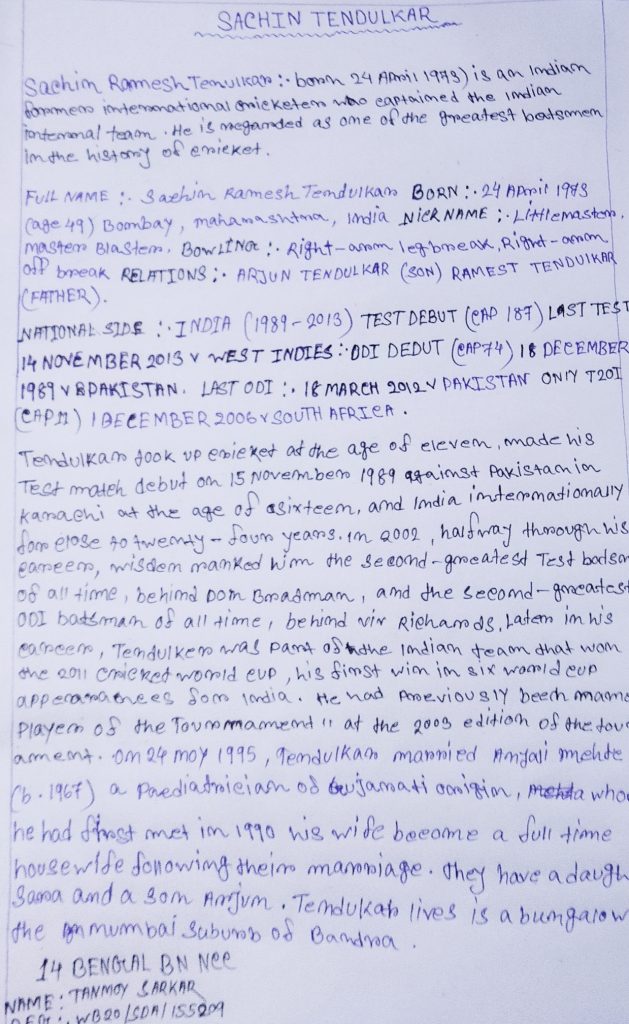 SACHIN TENDULKAR
Sachin Ramesh Tenulkar :- born 24 April 1973) is an Indian
former international cricketer who captained the indian
national team. He is regarded as one of the greatest batsmen
in the history of cricket.
FULL NAME :. Sachin Ramesh Tendulkar BORN :. 24 April 1973
(age 49) Bombay, maharashtra, India NICKNAME :. Littlemaster,
master Blaster. BOWLING :. Right-arm leg break, Right-arm
off break RELATIONS :. ARJUN TENDULKAR (SON) RAMEST TENDUIKAR
(FATHER).
NATIONAL SIDE :. INDIA (1989-2013) TEST DEBUT (CAP 187) LAST TEST
14 NOVEMBER 2013 V WEST INDIES :. ODI DEDUT (CAP74) 18 DECEMBER
1989 V PAKISTAN. LAST ODI :. 18 MARCH 2012 V PAKISTAN ONLY T20I
(CAP11) 1 DECEMBER 2006 V SOUTH AFRICA.
Tendulkar took up cricket at the age of eleven, made his
Test match debut on 15 November 1989 against Pakistan in
Karachi at the age of sixteen, and India internationally
for close to twenty-four years. in 2002, halfway through his
career, wisden ranked him the second-greatest Test batsm
of all time, behind Don Bradman, and the second-greatest
ODI batsman of all time, behind viv Richards, Later in his
career, Tendulker was part of the Indian team that won
the 2011 cricket world cup, his first win in six world cup
apperarachees for india. He had previously beech name
Player of the Tournmament" at the 2003 edition of the tour
ament. on 24 may 1995, Tendulkar married Anjali mehte
(b. 1967) a paediatrician of Gujarati origin, who
he had first met in 1990 his wife become a full time
housewife following their marriage. they have a daugh
Sara and a son Arjun. Tendukar lives is a bungalow
the mumbai suburb of Bandra.
14 BENGAL BN NCC
NAME : TANMOY SARKAR
WB20/SDA/155209